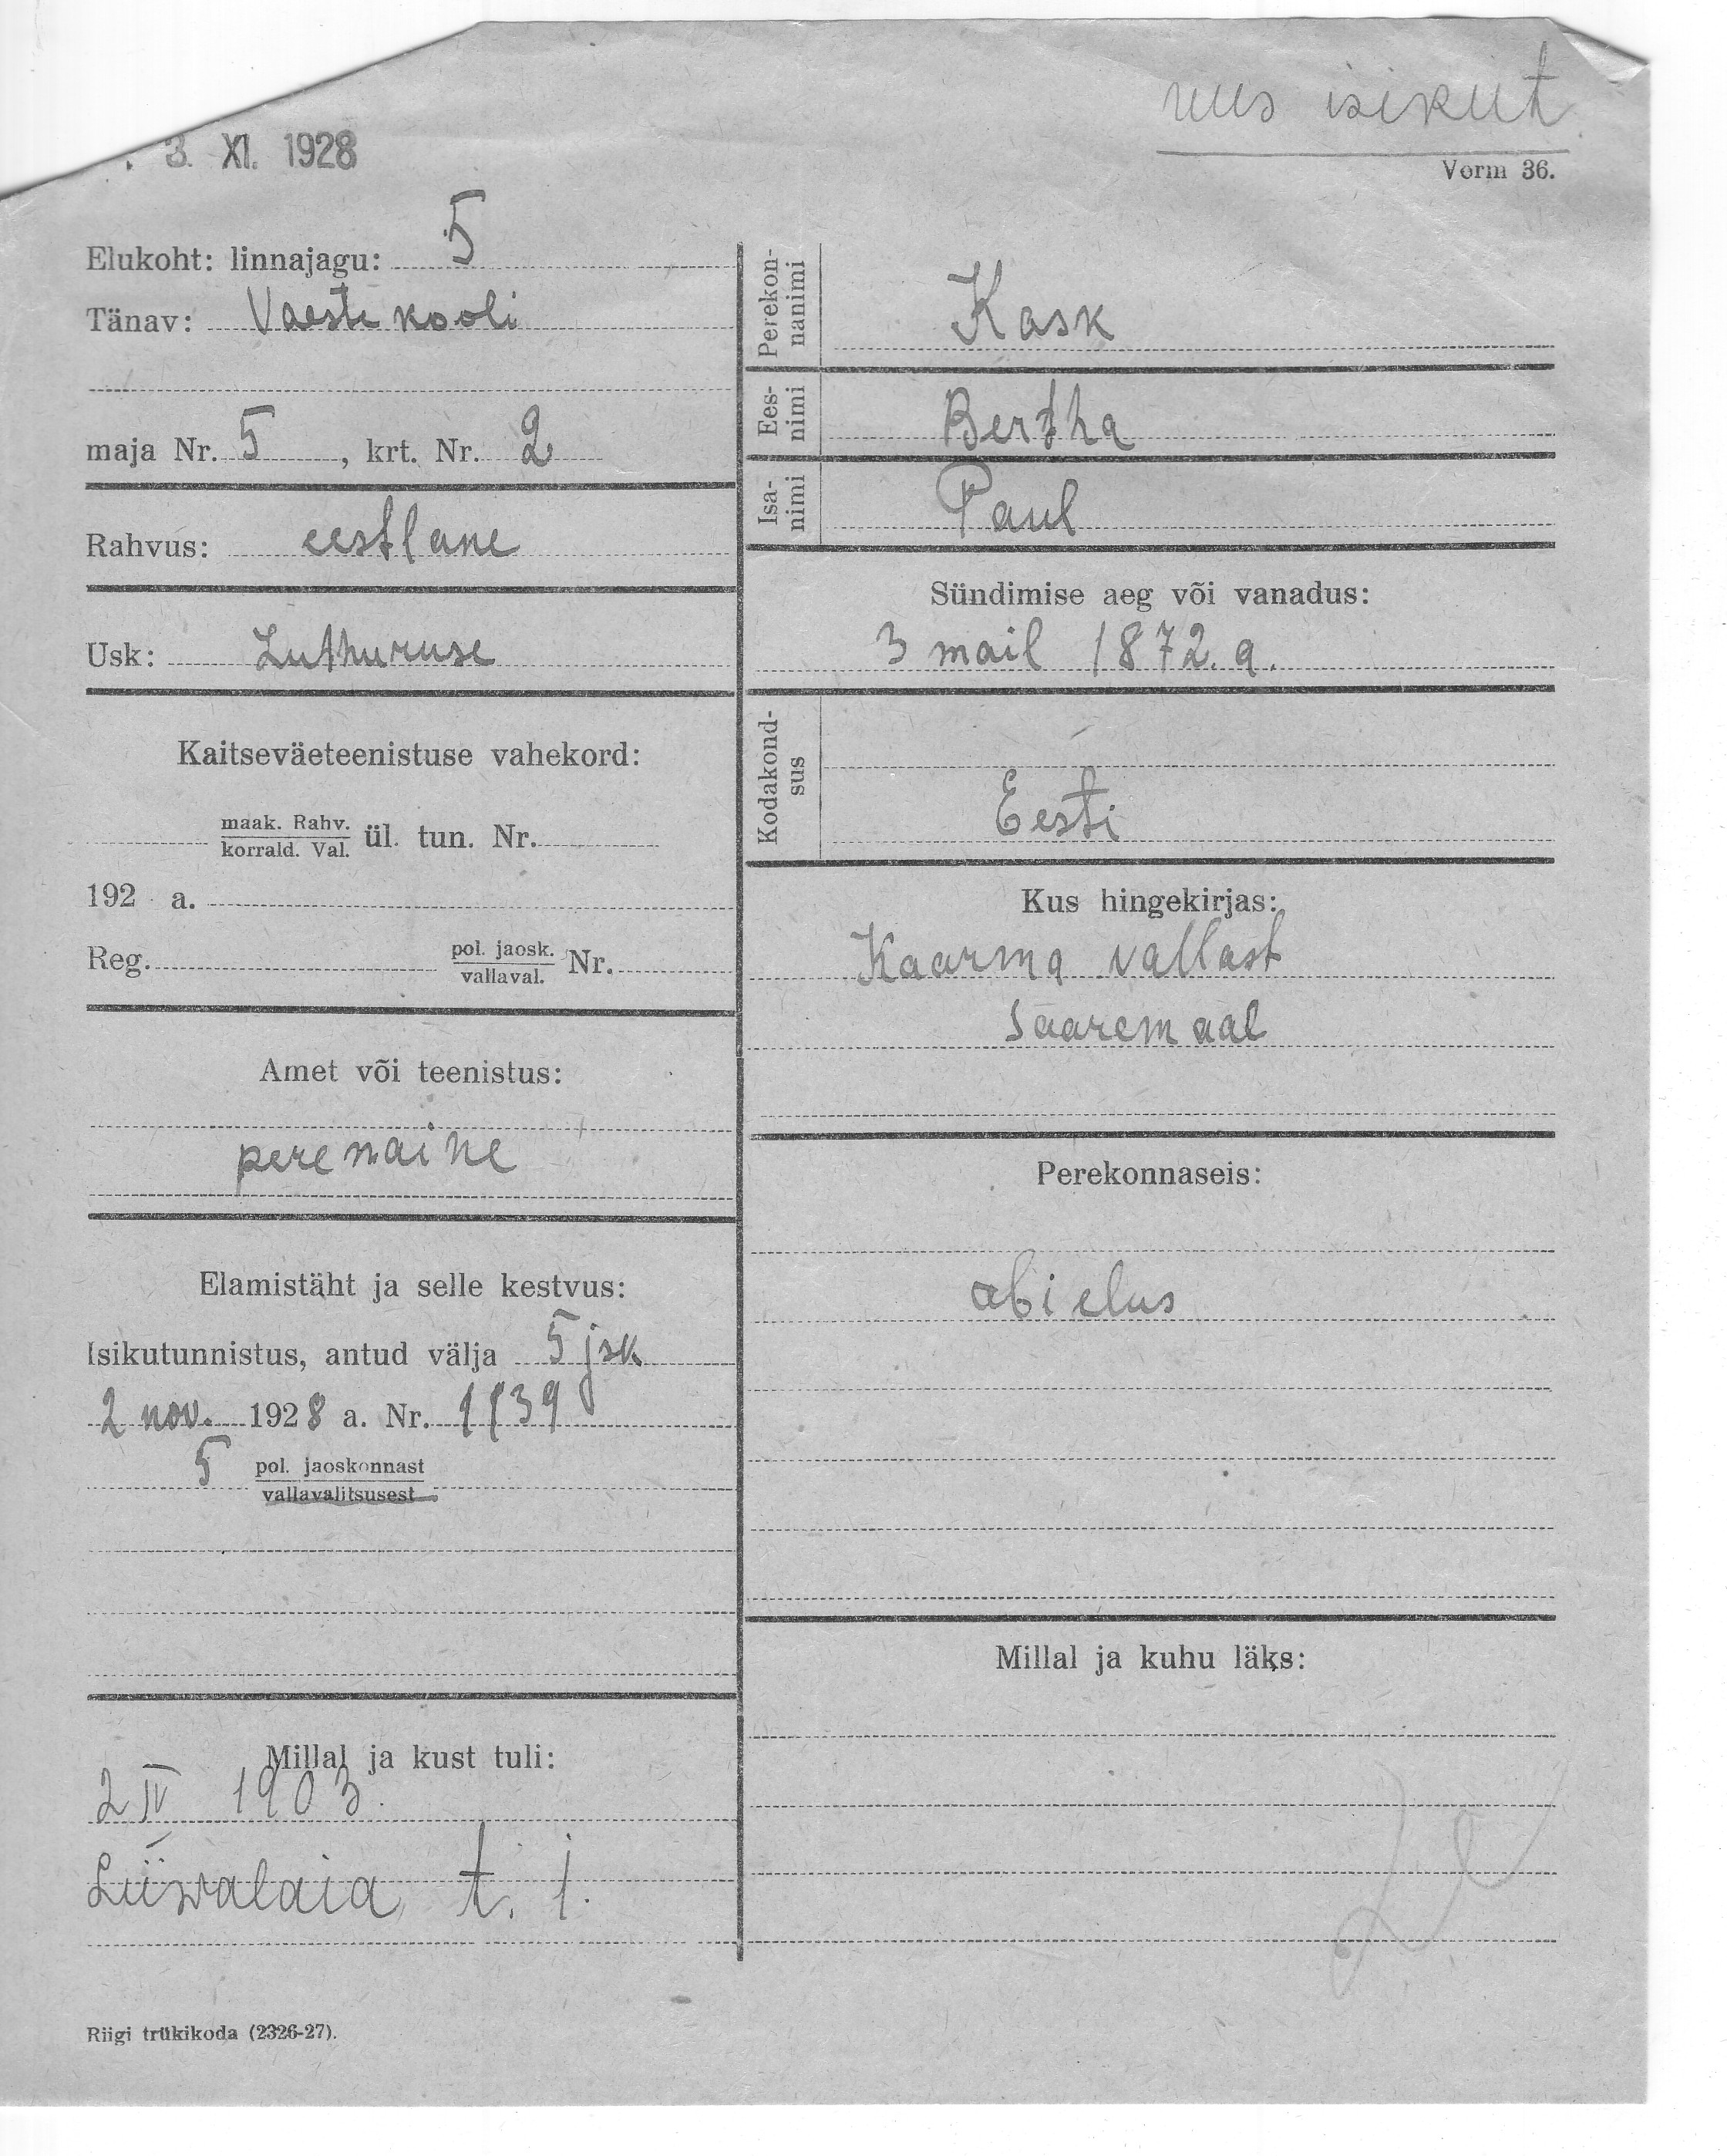 3. XI. 1928
uus isikut.
Vorm 36.
Elukoht: linnajagu: 5
Tänav: Vaeste kooli
maja Nr. 5, krt. Nr. 2
Rahvus: eestlane
Usk: Luthuruse
Kaitseväeteenistuse vahekord:
maak. Rahv.
korrald. Val. ül. tun. Nr.
192 a.
Reg. pol. jaosk. Nr.
vallaval.
Amet või teenistus:
perenaine
Elamistäht ja selle kestvus:
Isikutunnistus, antud välja 5 jsk
2 nov. 1928 a. Nr. 1139
5 pol. jaoskonnast
vallavalitsusest
Millal ja kust tuli:
2 IV 1903.
Liiwalaia t. 1.
Perekon-
nanimi
Kask
Ees-
nimi
Bertha
Isa-
nimi
Paul
Sündimise aeg või vanadus:
3 mail 1872. a.
Kodakond-
sus
Eesti
Kus hingekirjas:
Kaarma vallast
Saaremaal
Perekonnaseis:
abielus
Millal ja kuhu läks:
Riigi trükikoda (2326-27).